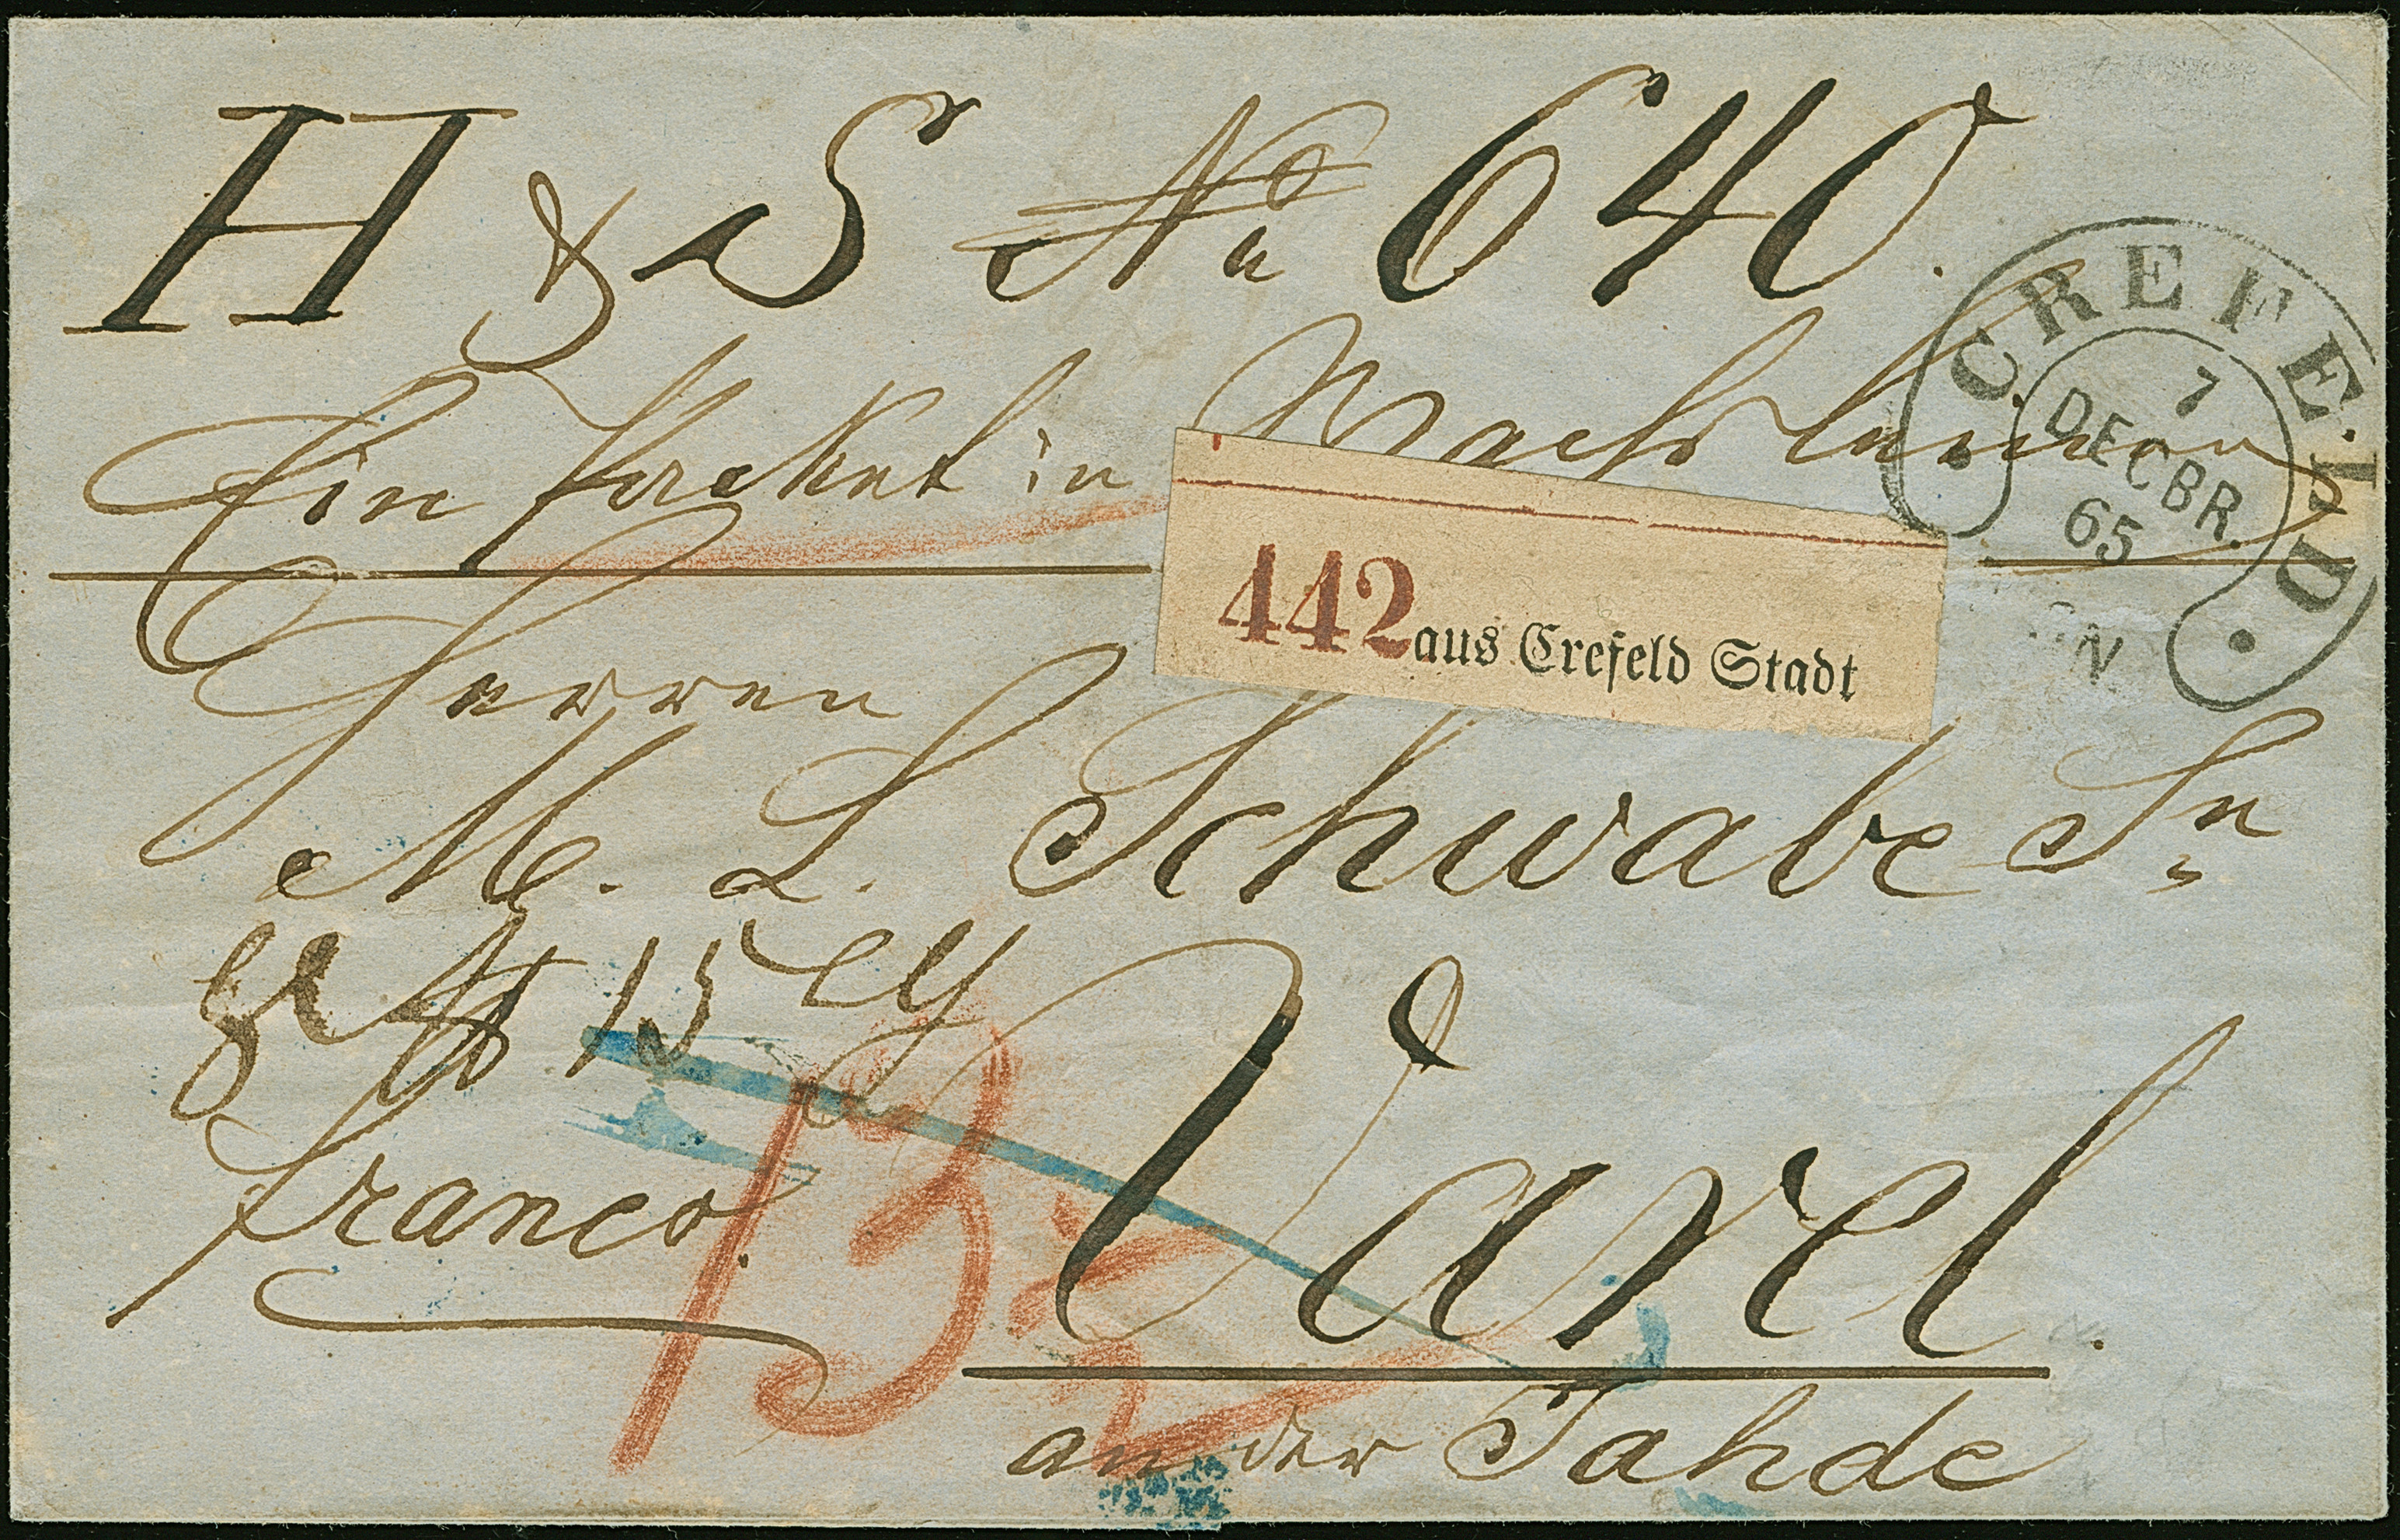 H & S No 640.
Ein Packet in Wachsleinen
CREFELD
7
DECBR.
65
442 aus Crefeld Stadt
Herren
M. L. Schwabe Sn
15
franco.
13 1/2
Varel.
an der Jahde